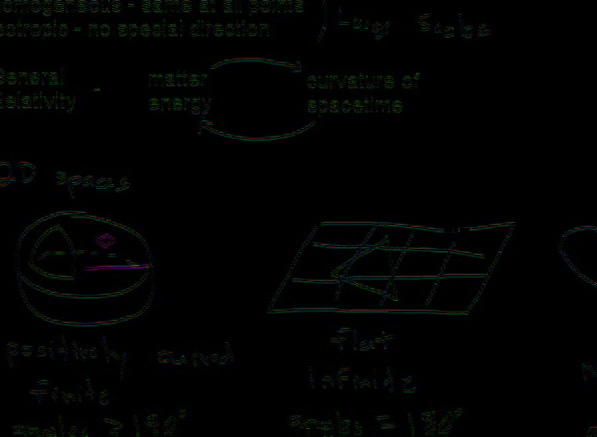 omogeneous - same at all points
otropic - no special direction
Large Scales
General
Relativity -
matter
energy
curvature of
spacetime
2D spaces
positively curved
finite
angles > 180°
flat
infinite
angles = 180°